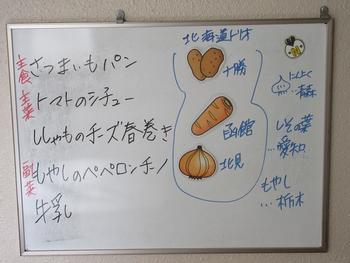 主食 さつまいもパン
主菜 トマトのシチュー
ししゃものチーズ春巻き
副菜 もやしのペペロンチーノ
牛乳
北海道トリオ
十勝
函館
北見
にんにく
…青森
しその葉
…愛知
もやし
…栃木